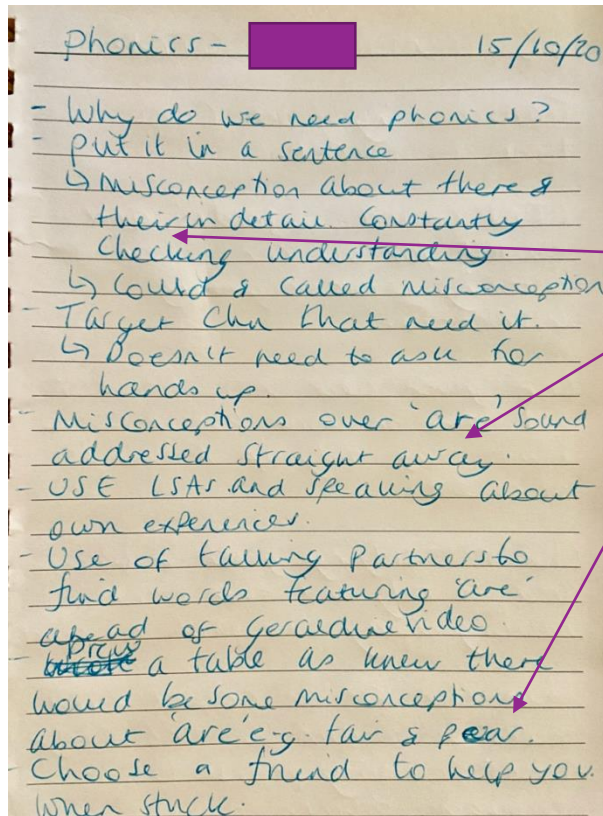 Phonics - 15/10/20
- Why do we need phonics?
- Put it in a sentence
↳ Misconception about there &
their in detail. Constantly
checking understanding.
↳ Could & called misconception
- Target Chn that need it.
↳ Doesn't need to ask for
hands up.
- Misconceptions over 'are' sound
addressed straight away.
- USE LSAs and speaking about
own experiences.
- Use of talking partners to
find words featuring 'are'
ahead of Geraldine video.
- Drew a table as knew there
would be some misconceptions
about 'are' e.g. fair & pear.
- Choose a friend to help you
when stuck.